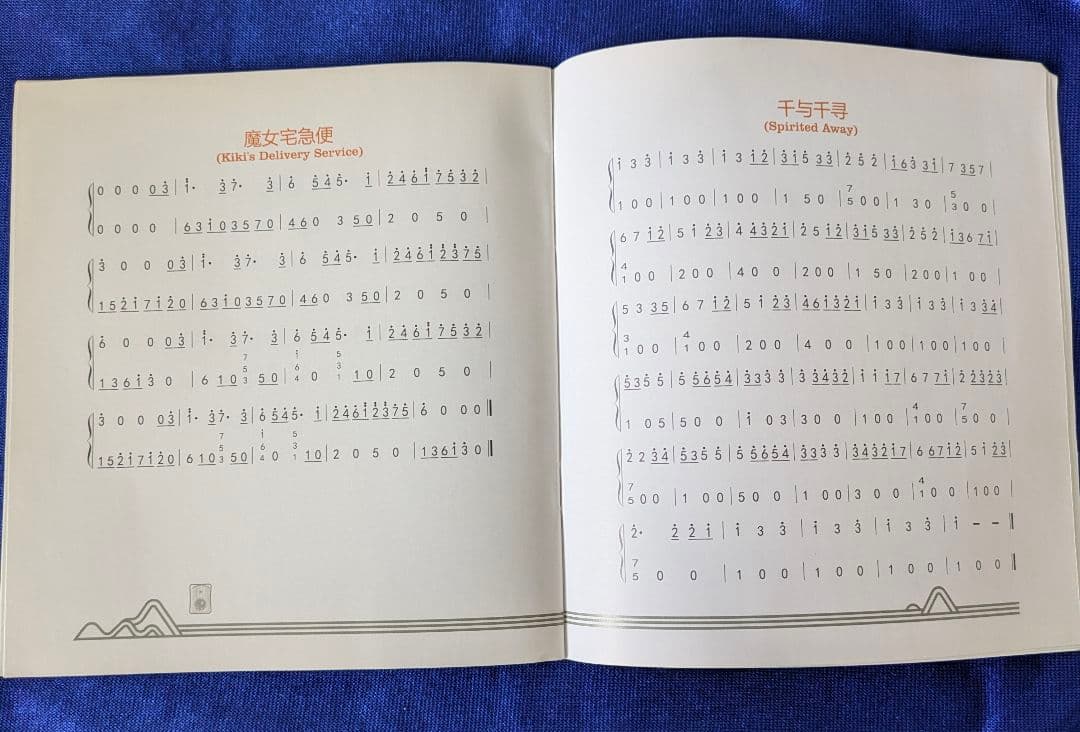 魔女宅急便
(Kiki's Delivery Service)
0 0 0 0 3̇ | i̇· 3̇ 7· 3̇ | 6̇ 5̇ 4̇ 5̇· i | 2̇ 4̇ 6̇ i̇ 7̇ 5̇ 3̇ 2̇ |
0 0 0 0 | 6 3 i 0 3 5 7 0 | 4 6 0 3 5 0 | 2 0 5 0 |
3̇ 0 0 0 3̇ | i̇· 3̇ 7· 3̇ | 6̇ 5̇ 4̇ 5̇· i | 2̇ 4̇ 6̇ i̇ 2̇ 3̇ 7̇ 5̇ |
1 5 2̇ i 7 i 2̇ 0 | 6 3 i 0 3 5 7 0 | 4 6 0 3 5 0 | 2 0 5 0 |
6̇ 0 0 0 3̇ | i̇· 3̇ 7· 3̇ | 6̇ 5̇ 4̇ 5̇· i | 2̇ 4̇ 6̇ i̇ 7̇ 5̇ 3̇ 2̇ |
7 i 5
5 6 3
1 3 6 i 3̇ 0 | 6 1 0 3 5 0 | 4 0 1 1 0 | 2 0 5 0 |
3̇ 0 0 0 3̇ | i̇· 3̇ 7· 3̇ | 6̇ 5̇ 4̇ 5̇· i | 2̇ 4̇ 6̇ i̇ 2̇ 3̇ 7̇ 5̇ | 6̇ 0 0 0 ‖
7 i 5
5 6 3
1 5 2̇ i 7 i 2̇ 0 | 6 1 0 3 5 0 | 4 0 1 1 0 | 2 0 5 0 | 1 3 6 i 3̇ 0 ‖
千与千寻
(Spirited Away)
i 3 3̇ | i 3 3̇ | i 3 i 2̇ | 3̇ i 5̇ 3̇ 3̇ | 2̇ 5̇ 2̇ | i 6 3̇ 3̇ i | 7 3 5 7 |
7 5
1 0 0 | 1 0 0 | 1 0 0 | 1 5 0 | 5 0 0 | 1 3 0 | 3 0 0 |
6 7 i 2̇ | 5 i 2̇ 3̇ | 4̇ 4̇ 3̇ 2̇ i | 2̇ 5 i 2̇ | 3̇ i 5̇ 3̇ 3̇ | 2̇ 5̇ 2̇ | i 3 6 7 i |
4
1 0 0 | 2 0 0 | 4 0 0 | 2 0 0 | 1 5 0 | 2 0 0 | 1 0 0 |
5 3 3 5 | 6 7 i 2̇ | 5 i 2̇ 3̇ | 4̇ 6 i 3̇ 2̇ i | i 3 3̇ | i 3 3̇ | i 3 3̇ 4̇ |
3 4
1 0 0 | 1 0 0 | 2 0 0 | 4 0 0 | 1 0 0 | 1 0 0 | 1 0 0 |
5̇ 3̇ 5̇ 5̇ | 5̇ 5̇ 6̇ 5̇ 4̇ | 3̇ 3̇ 3̇ 3̇ | 3̇ 3̇ 4̇ 3̇ 2̇ | i i i 7 | 6 7 7 i | 2̇ 2̇ 3̇ 2̇ 3̇ |
4 7
1 0 5 | 5 0 0 | i 0 3 | 3 0 0 | 1 0 0 | 1 0 0 | 5 0 0 |
2̇ 2 3̇ 4̇ | 5̇ 3̇ 5̇ 5̇ | 5̇ 5̇ 6̇ 5̇ 4̇ | 3̇ 3̇ 3̇ 3̇ | 3̇ 4̇ 3̇ 2̇ i 7 | 6 6 7 i 2̇ | 5 i 2̇ 3̇ |
7 4
5 0 0 | 1 0 0 | 5 0 0 | 1 0 0 | 3 0 0 | 1 0 0 | 1 0 0 |
2̇· 2̇ 2̇ i | i 3 3̇ | i 3 3̇ | i 3 3̇ | i – – ‖
7
5 0 0 | 1 0 0 | 1 0 0 | 1 0 0 | 1 0 0 ‖